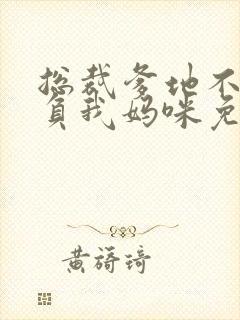 总裁爹地不
负我妈咪免
黄琦